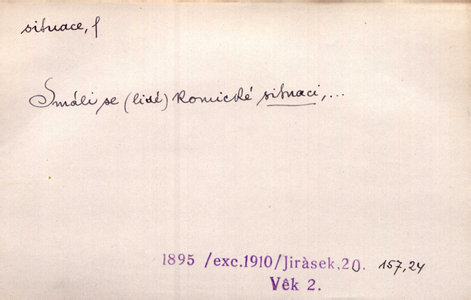 situace, f
Smáli se (lidé) komické situaci,...
1895 /exc.1910/Jiràsek,20. 157,24
Vêk 2.